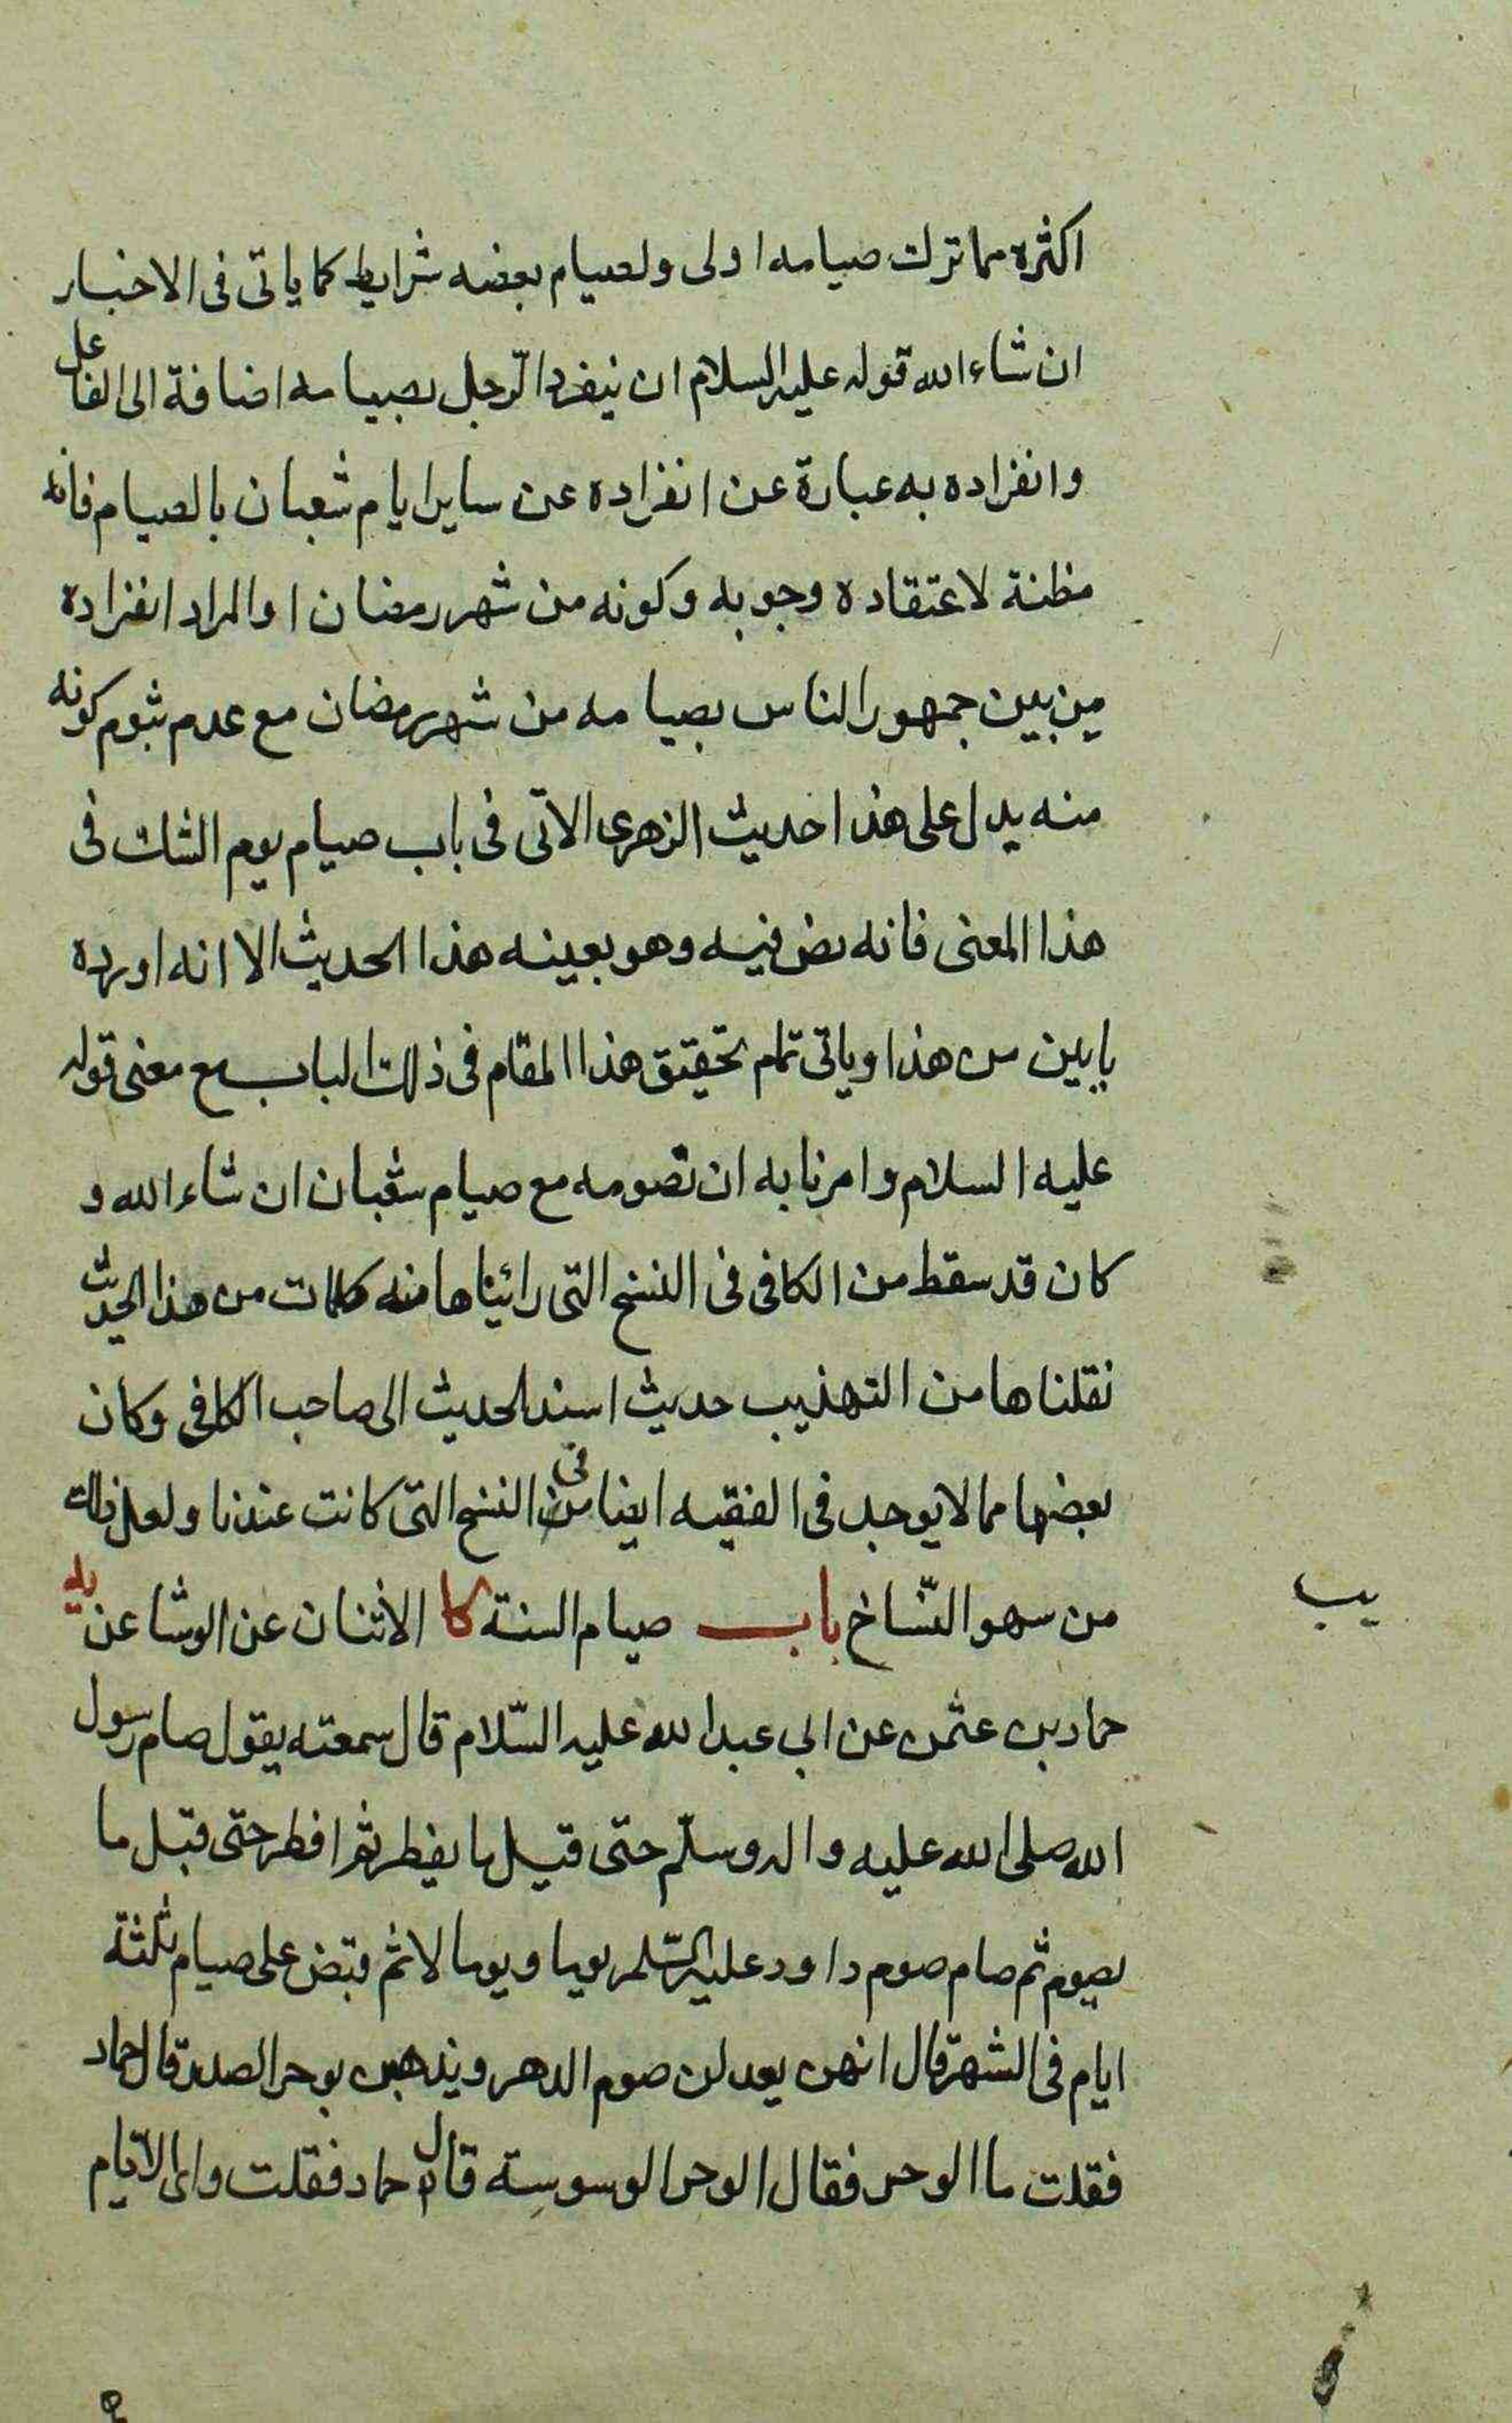 اكثره مما ترك صيامه اولى ولصيام بعضه شرايط كما ياتى فى الاخبار
ان شاء الله قوله عليه السلام ان ينفرد الرّجل بصيامه اضافة الى الفاعل
وانفراده به عبارة عن انفراده عن ساير ايام شعبان بالصيام فانه
مظنة لاعتقاده وجوبه وكونه من شهر رمضان او المراد انفراده
من بين جمهور الناس بصيامه من شهر رمضان مع عدم ثبوم كونه
منه يدل على هذا حديث الزهرى الاتى فى باب صيام يوم الشك فى
هذا المعنى فانه نص فيه وهو بعينه هذا الحديث الا انه اورده
بابين من هذا وياتى تمام تحقيق هذا المقام فى ذلك الباب مع معنى قوله
عليه السلام وامرنا به ان نصومه مع صيام شعبان ان شاء الله و
كان قد سقط من الكافى فى النسخ التى رائيناها منه كلمات من هذا الحديث
نقلناها من التهذيب حديث اسند الحديث الى صاحب الكافى وكان
بعضها مما لا يوجد فى الفقيه ايضا من فى النسخ التى كانت عندنا ولعل ذلك
من سهو النسّاخ باب صيام السنة كا الاثنان عن الوشا عن يه
يب
حماد بن عثمن عن ابي عبد الله عليه السّلام قال سمعته يقول صام رسول
الله صلى الله عليه واله وسلّم حتى قيل ما يفطر ثم افطر حتى قيل ما
يصوم ثم صام صوم داود عليه السّلم يوما ويوما لا ثم قبض على صيام ثلثة
ايام فى الشهر قال انهن يعدلن صوم الدهر ويذهبن بوحر الصدر قال حماد
فقلت ما الوحر فقال الوحر الوسوسة قال حماد فقلت واى الايّام